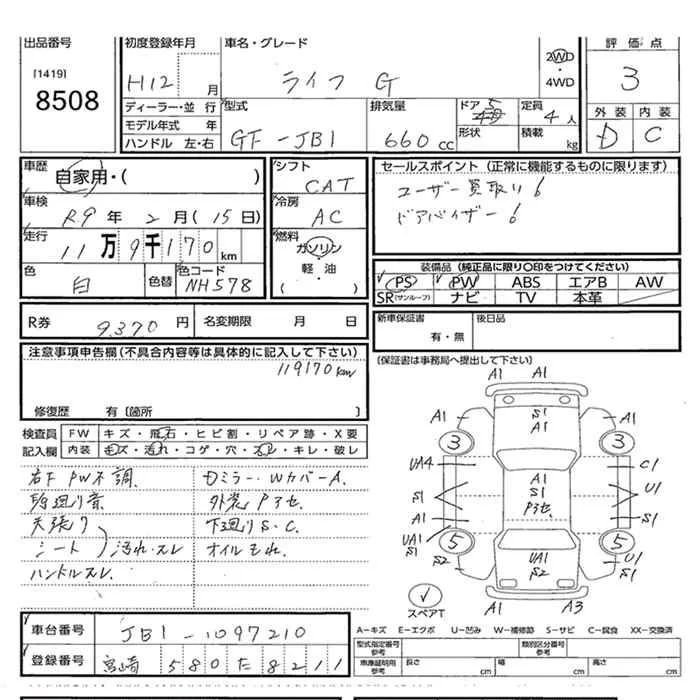 出品番号
[1419]
8508
初度登録年月
H12 月
車名・グレード
ライフ G
2WD
・
4WD
評価点
3
ディーラー・並行
モデル年式 年
ハンドル 左・右
型式
GF-JB1
排気量
660 cc
ドア 5
形状
定員
4人
積載 kg
外装 内装
D C
車歴
自家用・( )
車検
R9年 2月(15日)
走行
11万9千170km
色
白
色替
色コード
NH578
シフト
CAT
冷房
AC
燃料
ガソリン
軽・油
( )
セールスポイント(正常に機能するものに限ります)
ユーザー買取り!
ドアバイザー!
装備品(純正品に限り○印をつけてください)
PS PW ABS エアB AW
SR(サンルーフ) ナビ TV 本革
R券 9370円
名変期限 月 日
新車保証書
有・無
後日品
(保証書は事務局へ提出して下さい)
注意事項申告欄(不具合内容等は具体的に記入して下さい)
119170km
修復歴 有〔箇所 〕
検査員
記入欄
FW キズ・飛石・ヒビ割・リペア跡・X要
内装 キズ・汚れ・コゲ・穴・スレ・キレ・破レ
右F PW不調
天張り
シート 汚れ・スレ
ハンドルスレ.
Dミラー・WカバーA.
下廻りS.C.
オイルもれ.
A1 A1
A1 S1 A1
A1
3 3
UA4 C1
A1
S1 S1 U1
Pアセ.
A1 S1
UA1
S1
5 5
S2 UA1 U1
S2 S1
スペアT
A1 A3
A−キズ E−エクボ U−凹み W−補修跡 S−サビ C−腐食 XX−交換済
車台番号
JB1-1097210
登録番号
宮崎 580 た 8211
型式指定番号
参考
類別区分番号
参考
車庫証明用
参考
長さ cm
幅 cm
高さ cm